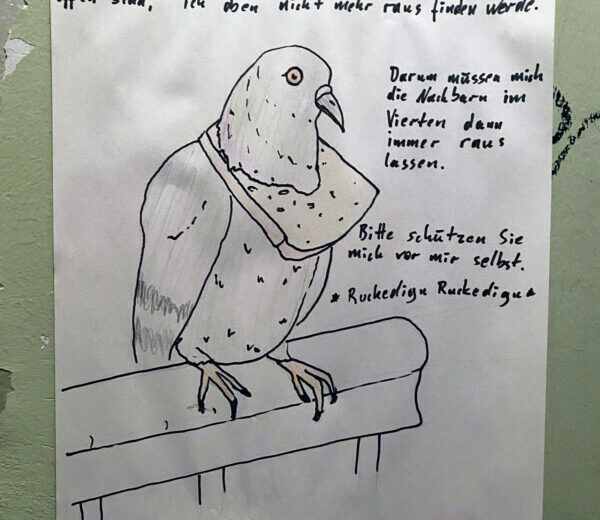 offen sind, ich oben nicht mehr raus finden werde.
Darum müssen mich
die Nachbarn im
Vierten dann
immer raus
lassen.
Bitte schützen Sie
mich vor mir selbst.
* Ruckedigu Ruckedigu *